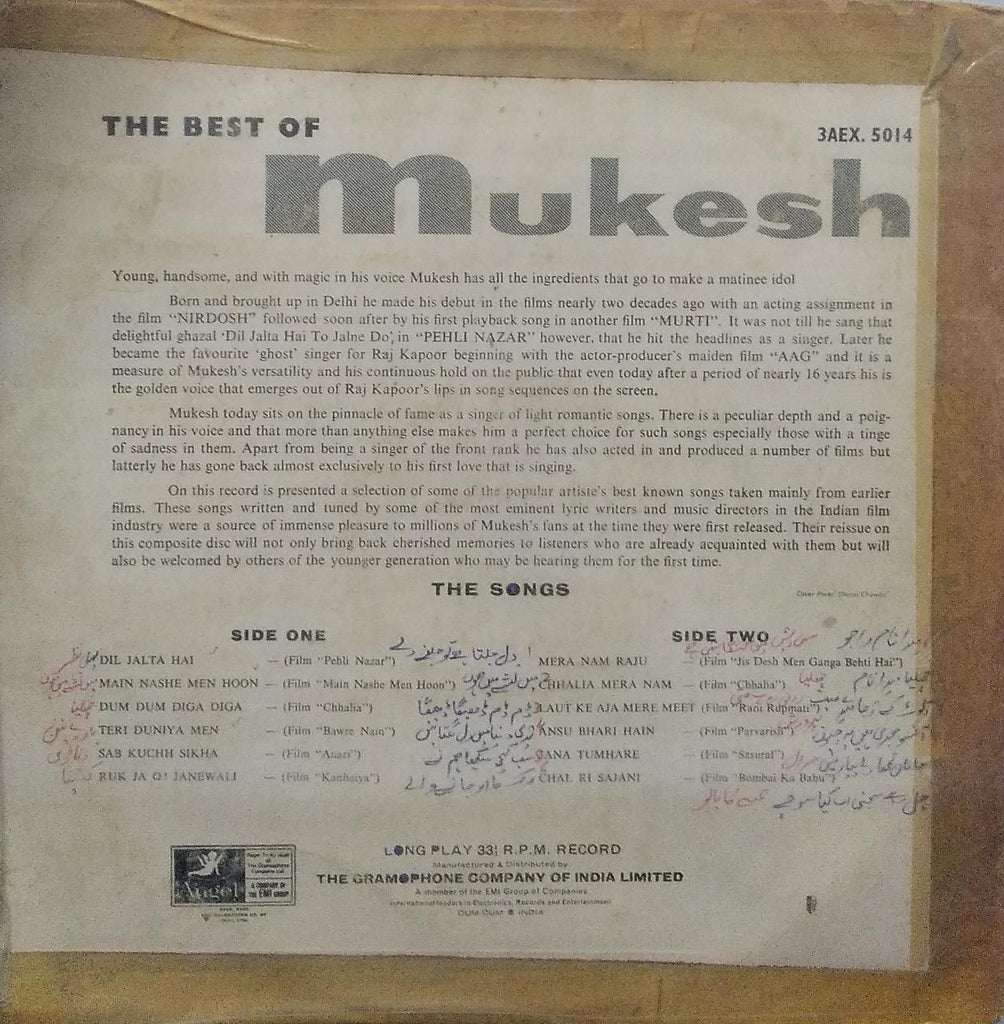 THE BEST OF
3AEX. 5014
Mukesh
Young, handsome, and with magic in his voice Mukesh has all the ingredients that go to make a matinee idol
Born and brought up in Delhi he made his debut in the films nearly two decades ago with an acting assignment in
the film “NIRDOSH” followed soon after by his first playback song in another film “MURTI”. It was not till he sang that
delightful ghazal ‘Dil Jalta Hai To Jalne Do’, in “PEHLI NAZAR” however, that he hit the headlines as a singer. Later he
became the favourite ‘ghost’ singer for Raj Kapoor beginning with the actor-producer’s maiden film “AAG” and it is a
measure of Mukesh’s versatility and his continuous hold on the public that even today after a period of nearly 16 years his is
the golden voice that emerges out of Raj Kapoor’s lips in song sequences on the screen.
Mukesh today sits on the pinnacle of fame as a singer of light romantic songs. There is a peculiar depth and a poig-
nancy in his voice and that more than anything else makes him a perfect choice for such songs especially those with a tinge
of sadness in them. Apart from being a singer of the front rank he has also acted in and produced a number of films but
latterly he has gone back almost exclusively to his first love that is singing.
On this record is presented a selection of some of the popular artiste’s best known songs taken mainly from earlier
films. These songs written and tuned by some of the most eminent lyric writers and music directors in the Indian film
industry were a source of immense pleasure to millions of Mukesh’s fans at the time they were first released. Their reissue on
this composite disc will not only bring back cherished memories to listeners who are already acquainted with them but will
also be welcomed by others of the younger generation who may be hearing them for the first time.
THE SONGS
SIDE ONE
DIL JALTA HAI — (Film “Pehli Nazar”) دل جلتا ہے تو جلنے دے
MAIN NASHE MEN HOON — (Film “Main Nashe Men Hoon”) میں نشے میں ہوں
DUM DUM DIGA DIGA — (Film “Chhalia”) ڈم ڈم ڈیگا ڈیگا
TERI DUNIYA MEN — (Film “Bawre Nain”)
SAB KUCHH SIKHA — (Film “Anari”) سب کچھ سیکھا ہم نے
RUK JA O! JANEWALI — (Film “Kanhaiya”)
SIDE TWO
MERA NAM RAJU — (Film “Jis Desh Men Ganga Behti Hai”) میرا نام راجو
CHHALIA MERA NAM — (Film “Chhalia”) چھلیا میرا نام
LAUT KE AJA MERE MEET (Film “Rani Rupmati”)
ANSU BHARI HAIN — (Film “Parvarish”)
JANA TUMHARE — (Film “Sasural”)
CHAL RI SAJANI — (Film “Bombai Ka Babu”)
LONG PLAY 33⅓ R.P.M. RECORD
Manufactured & Distributed by
THE GRAMOPHONE COMPANY OF INDIA LIMITED
A member of the EMI Group of Companies
International leaders in Electronics, Records and Entertainment
DUM DUM INDIA
Angel